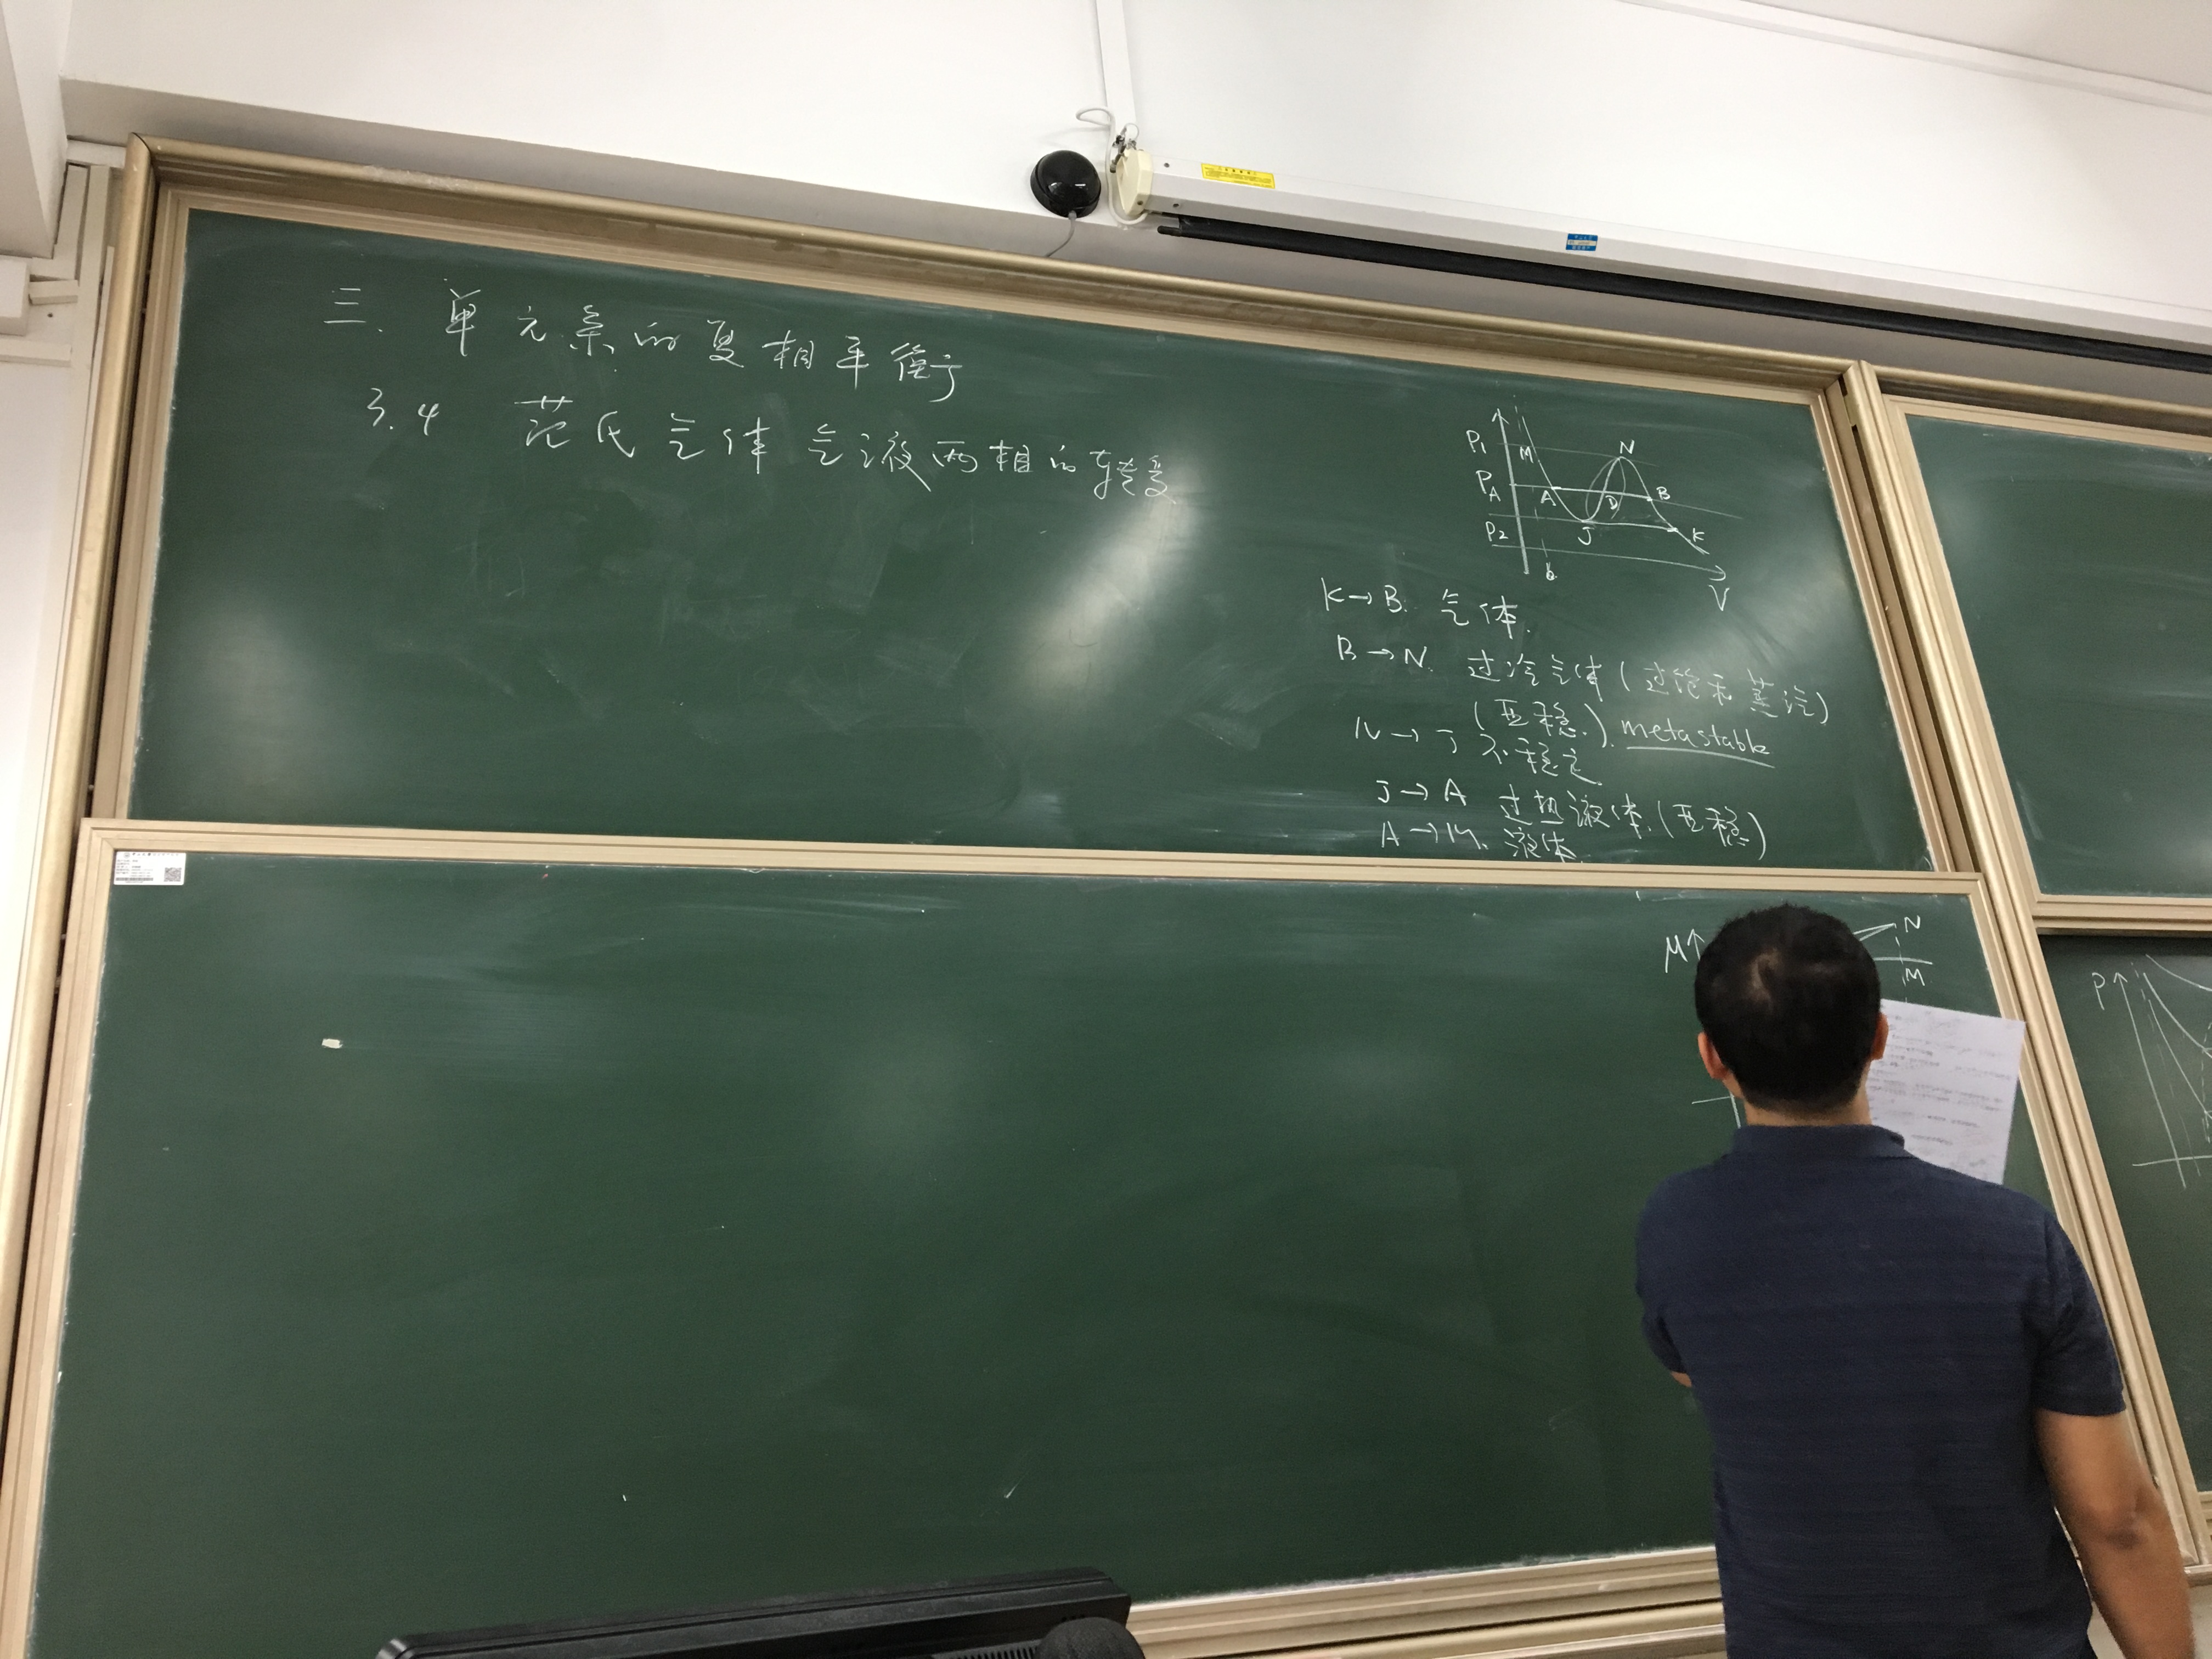 三. 单元系的复相平衡
3.4 范氏气体气液两相的转变
P1
M
N
PA
A
D
B
P2
J
K
b
V
K→B. 气体.
B→N. 过冷气体(过饱和蒸汽)
(亚稳.). metastable
N→J 不稳定
J→A 过热液体.(亚稳)
A→M. 液体
μ
N
M
P